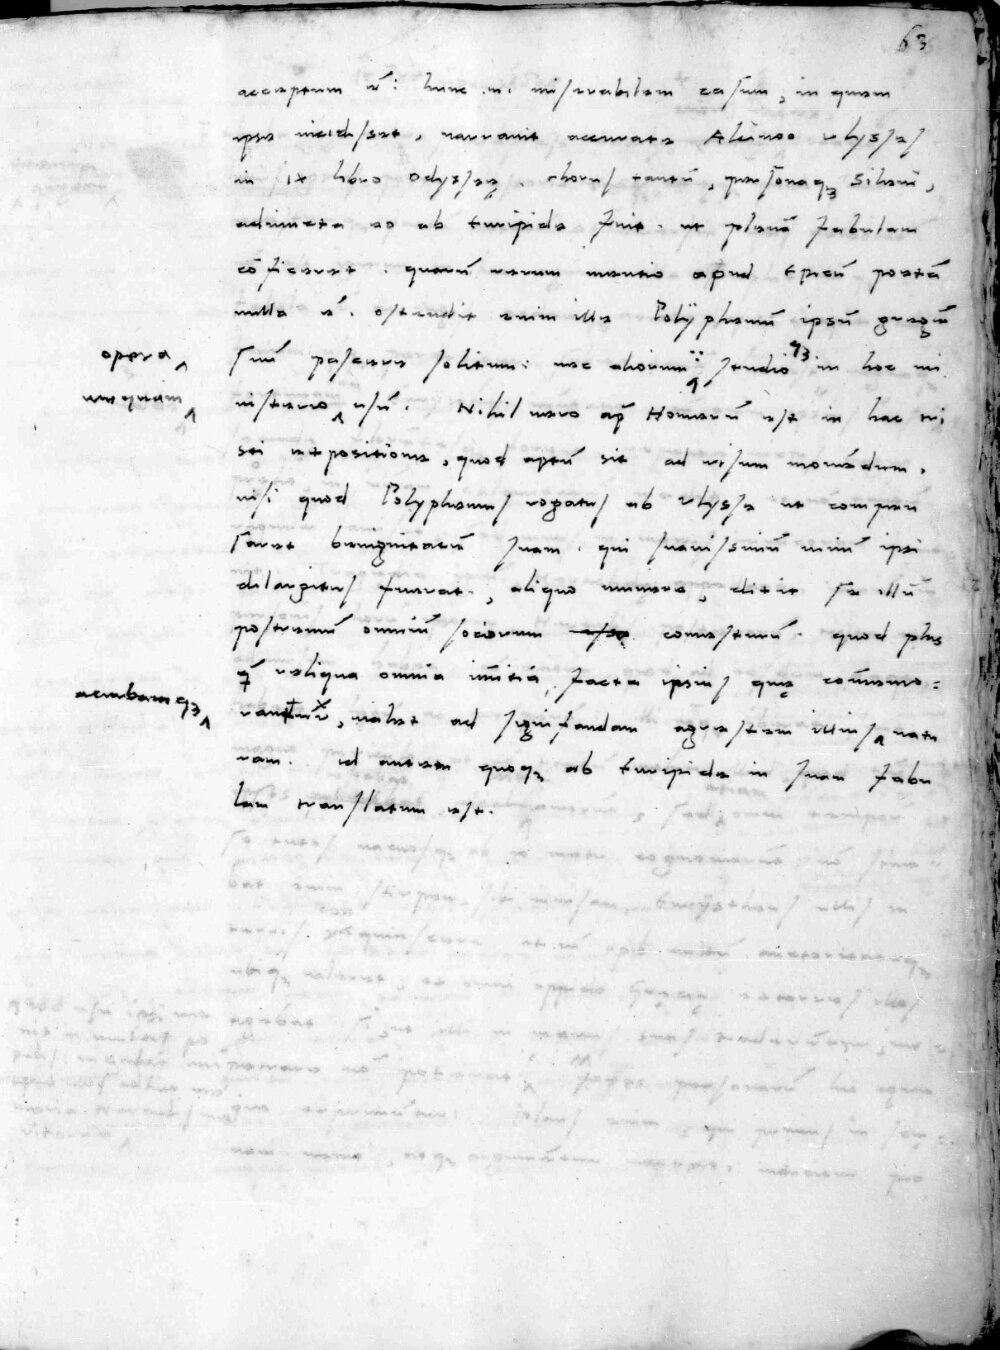 63
acceptum ē: hunc .n. miserabilem casum, in quem
ipse incidisset, narravit accurate Alcinoo Ulysses
in IX libro Odysseę. chorus tantū, personaq3 Sileni,
adiuncta eo ab Euripide fuit. ut plenā fabulam
cōficeret. quarū rerum mentio apud Epicū poetā
nulla ē. ostendit enim ille Polÿphemū ipsū gregē
opera
suū pascere solitum: nec aliorum studio q3 in hoc mi
nequam
nisterio usū. Nihil vero ap̄ Homerū est in hac tri
sti expositione, quod aptū sit ad risum movēdum,
nisi quod Polyphemus rogatus ab Ulysse ut compen
saret benignitatē suam. qui suavissimū vinū ipsi
dilargitus fuerat, aliquo munere, dixit se illū
postremū omniū sociorum comesturū. quod plus
q̄ reliqua omnia īmitia, facta ipsius quę cōmemo=
acerbamq3
rantur, valet ad significandam agrestem illius natu
ram. id autem quoq3 ab Euripide in suam fabu
lam translatum est.